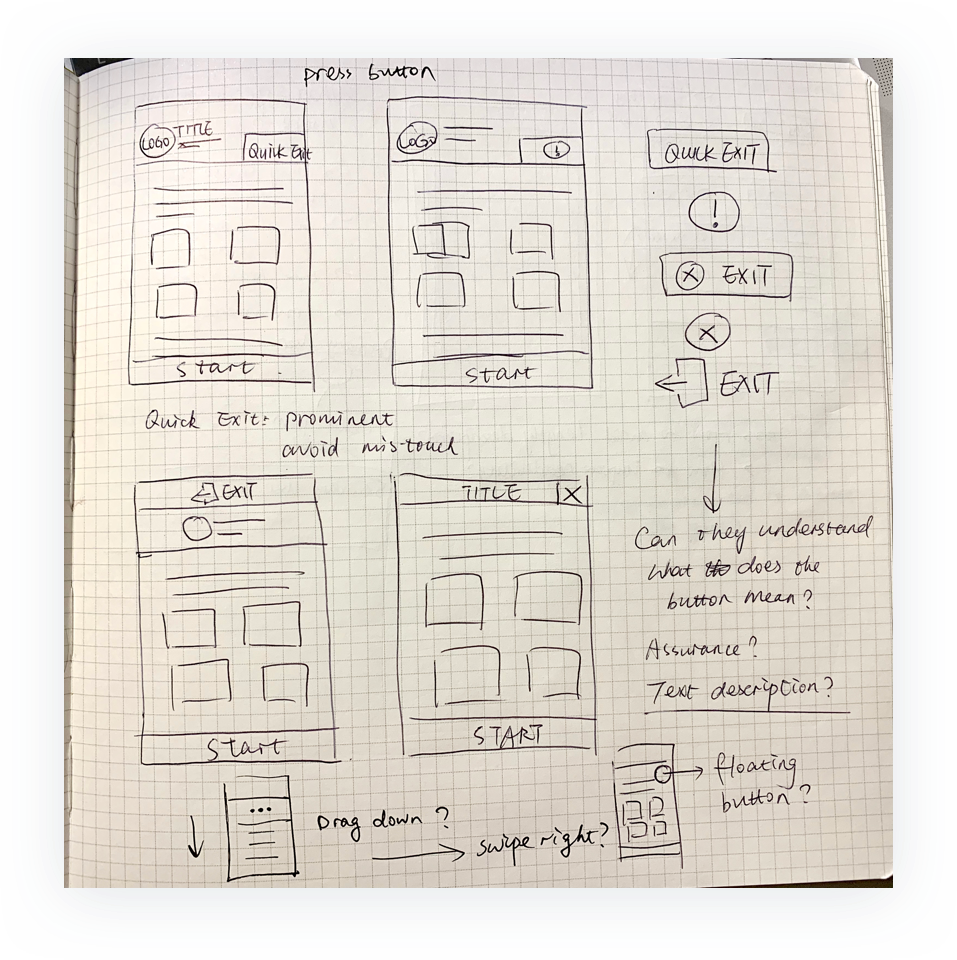 press button
LOGO TITLE
Quick Exit
start
LOGO
!
start
QUICK EXIT
!
X EXIT
X
EXIT
Quick Exit: prominent
avoid mis-touch
EXIT
Start
TITLE X
START
Can they understand
what does the
button mean?
Assurance?
Text description?
Drag down?
swipe right?
floating
button?